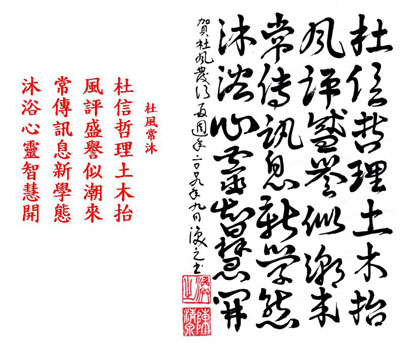 杜信哲理土木抬
風評盛譽似潮來
常傳訊息新學態
沐浴心靈智慧開
賀杜風發行百週年
杜風常沐
杜信哲理土木抬
風評盛譽似潮來
常傳訊息新學態
沐浴心靈智慧開